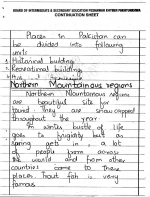 BOARD OF INTERMEDIATE & SECONDARY EDUCATION PESHAWAR KHYBER PAKHTUNKHWA
CONTINUATION SHEET
Places in Pakistan can
be divided into following
units
1. Historical building
2. Recreational building
3.
Northern Mountainous regions
Northern Mountainous regions
are beautiful site for
found they are snow capped
throughout the year
In winter bustle of life
goes to but as
spring gets in, a lot
of people from across
the world and from other
countries come to these
places. trout fish is very
famous